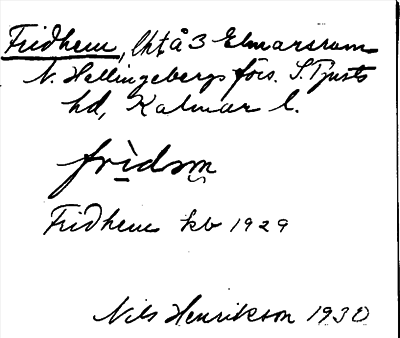 Fridhem, lht å 3 Elmarsrum
N. Hellingebergs förs. S. Tjusts
hd, Kalmar l.
frìdsm̥
Fridhem kb 1929
Nils Henrikson 1930